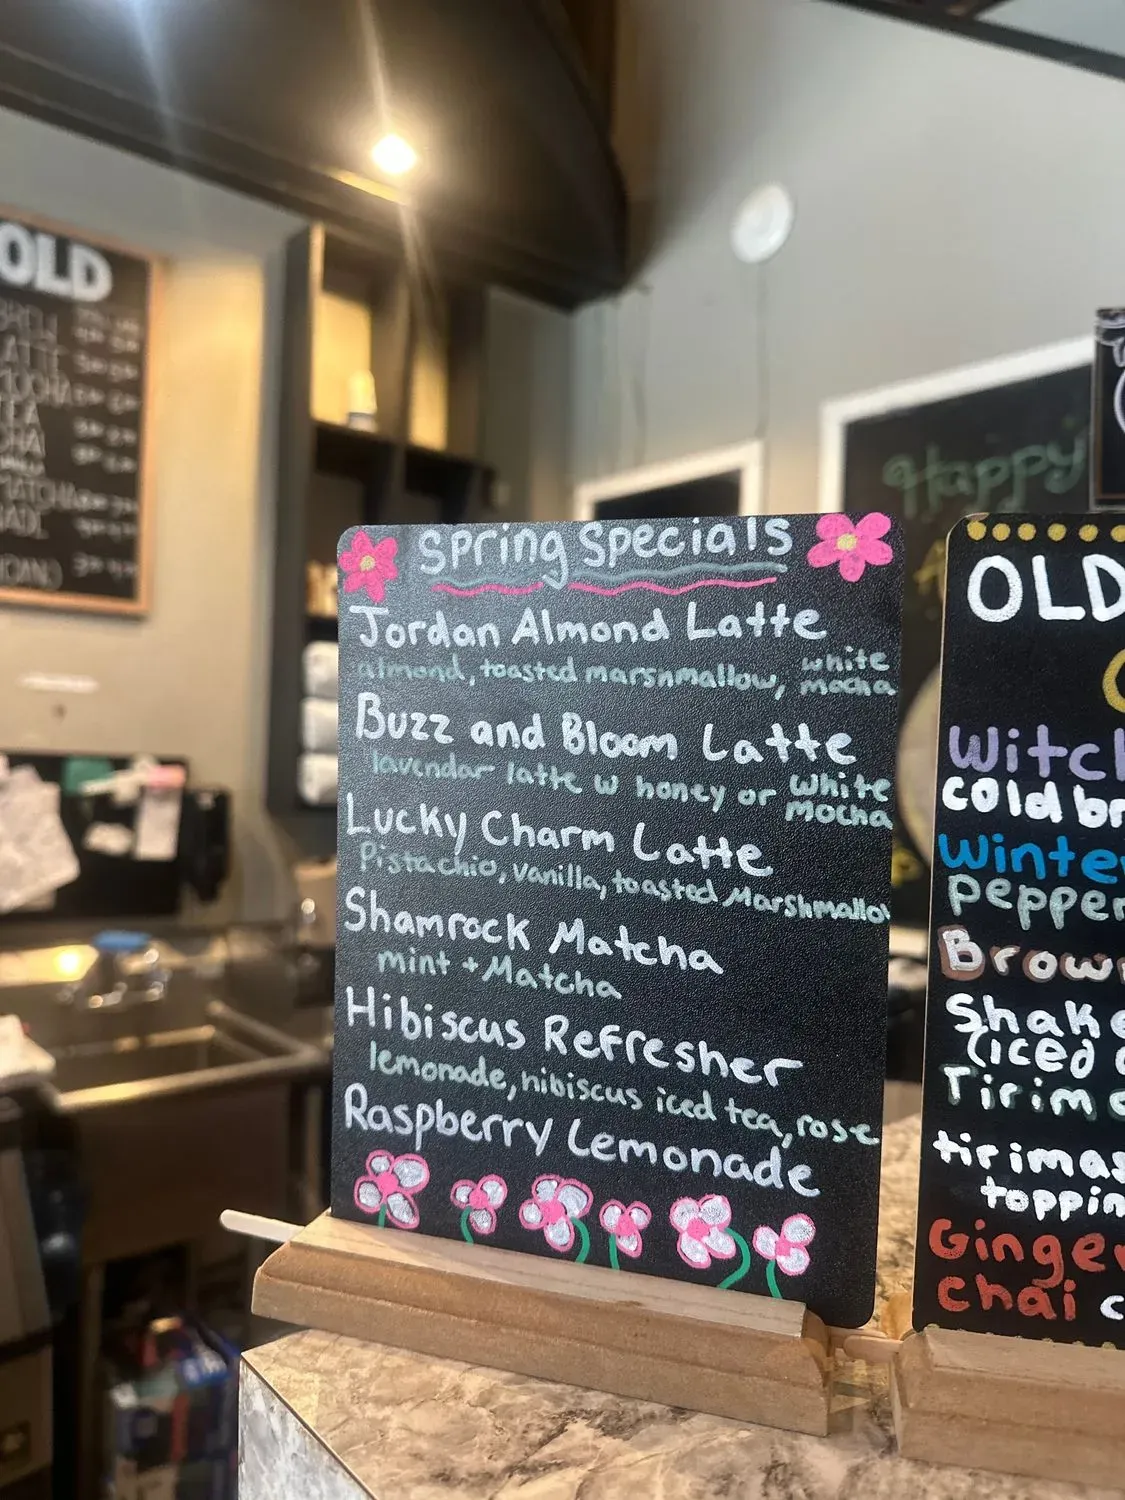 OLD
Happy
spring specials
Jordan Almond Latte
almond, toasted marshmallow, white mocha
Buzz and Bloom Latte
lavendar latte w honey or white mocha
Lucky Charm Latte
Pistachio, vanilla, toasted Marshmallo
Shamrock Matcha
mint + Matcha
Hibiscus Refresher
lemonade, hibiscus iced tea, rose
Raspberry Lemonade
OLD
Witch
cold br
Winte
pepper
Brow
Shake
(iced
Tirim
tirimas
toppin
Ginge
chai c